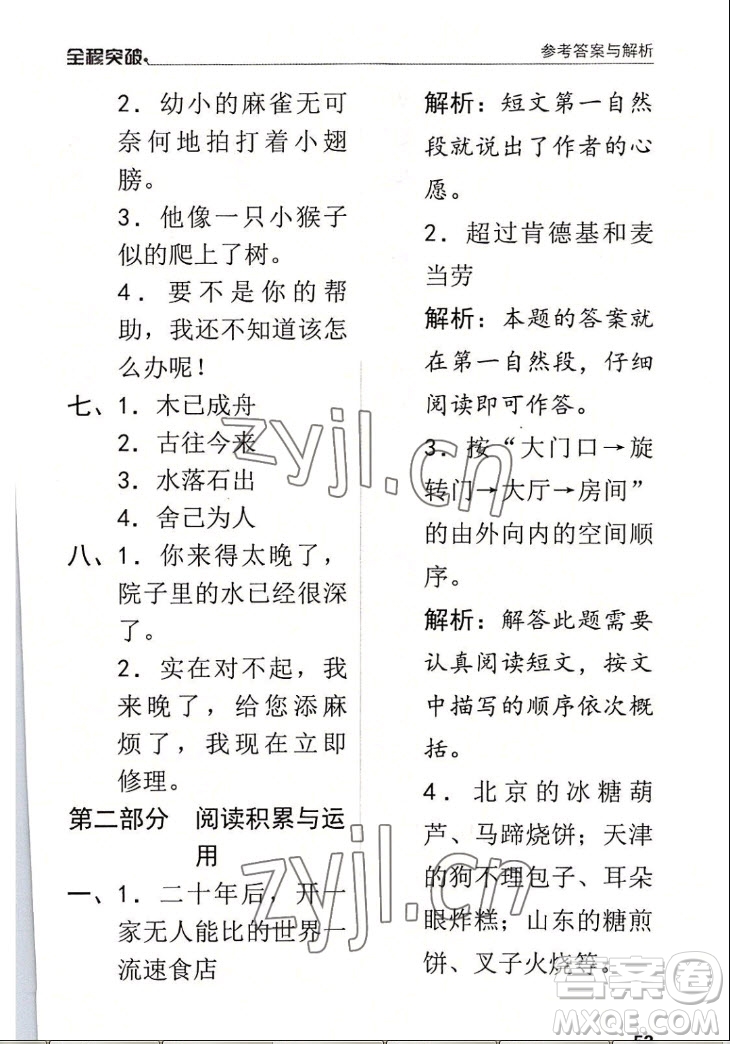 全程突破
参考答案与解析
2．幼小的麻雀无可
奈何地拍打着小翅
膀。
3．他像一只小猴子
似的爬上了树。
4．要不是你的帮
助，我还不知道该怎
么办呢！
七、1．木已成舟
2．古往今来
3．水落石出
4．舍己为人
八、1．你来得太晚了，
院子里的水已经很深
了。
2．实在对不起，我
来晚了，给您添麻
烦了，我现在立即
修理。
第二部分 阅读积累与运
用
一、1．二十年后，开一
家无人能比的世界一
流速食店
解析：短文第一自然
段就说出了作者的心
愿。
2．超过肯德基和麦
当劳
解析：本题的答案就
在第一自然段，仔细
阅读即可作答。
3．按“大门口→旋
转门→大厅→房间”
的由外向内的空间顺
序。
解析：解答此题需要
认真阅读短文，按文
中描写的顺序依次概
括。
4．北京的冰糖葫
芦、马蹄烧饼；天津
的狗不理包子、耳朵
眼炸糕；山东的糖煎
饼、叉子火烧等。
zyjl.cn
zyjl.cn
答案圈
MXQE.COM